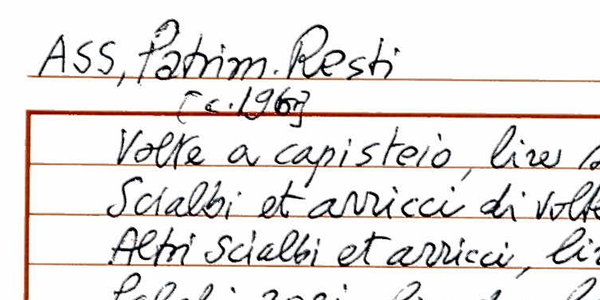 ASS, Patrim. Resti
[c. 196r]
Volte a capisteio, lire
Scialbi et arricci di volte
Altri scialbi et arricci, li